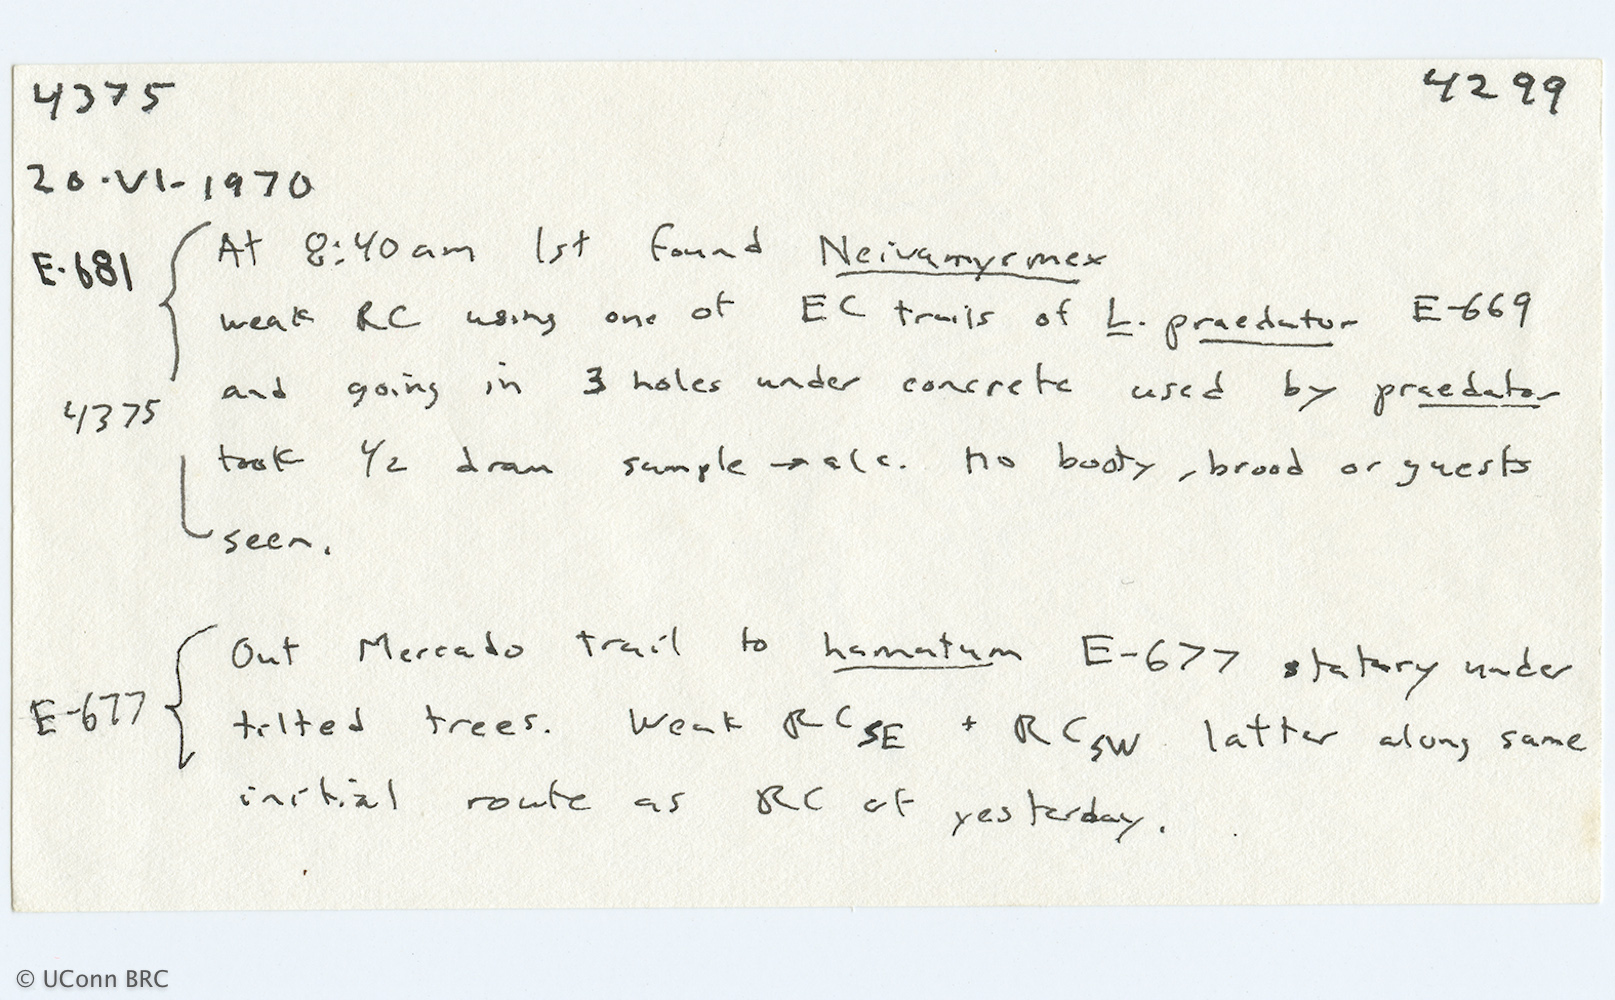 4375 4299
20-VI-1970
E-681 At 8:40am 1st found Neivamyrmex
weak RC using one of EC trails of L. praedator E-669
and going in 3 holes under concrete used by praedator
4375 took 1/2 dram sample → alc. No booty, brood or guests
seen.
Out Mercado trail to hamatum E-677 statary under
E-677 tilted trees. Weak RC SE + RC SW latter along same
initial route as RC of yesterday.
© UConn BRC